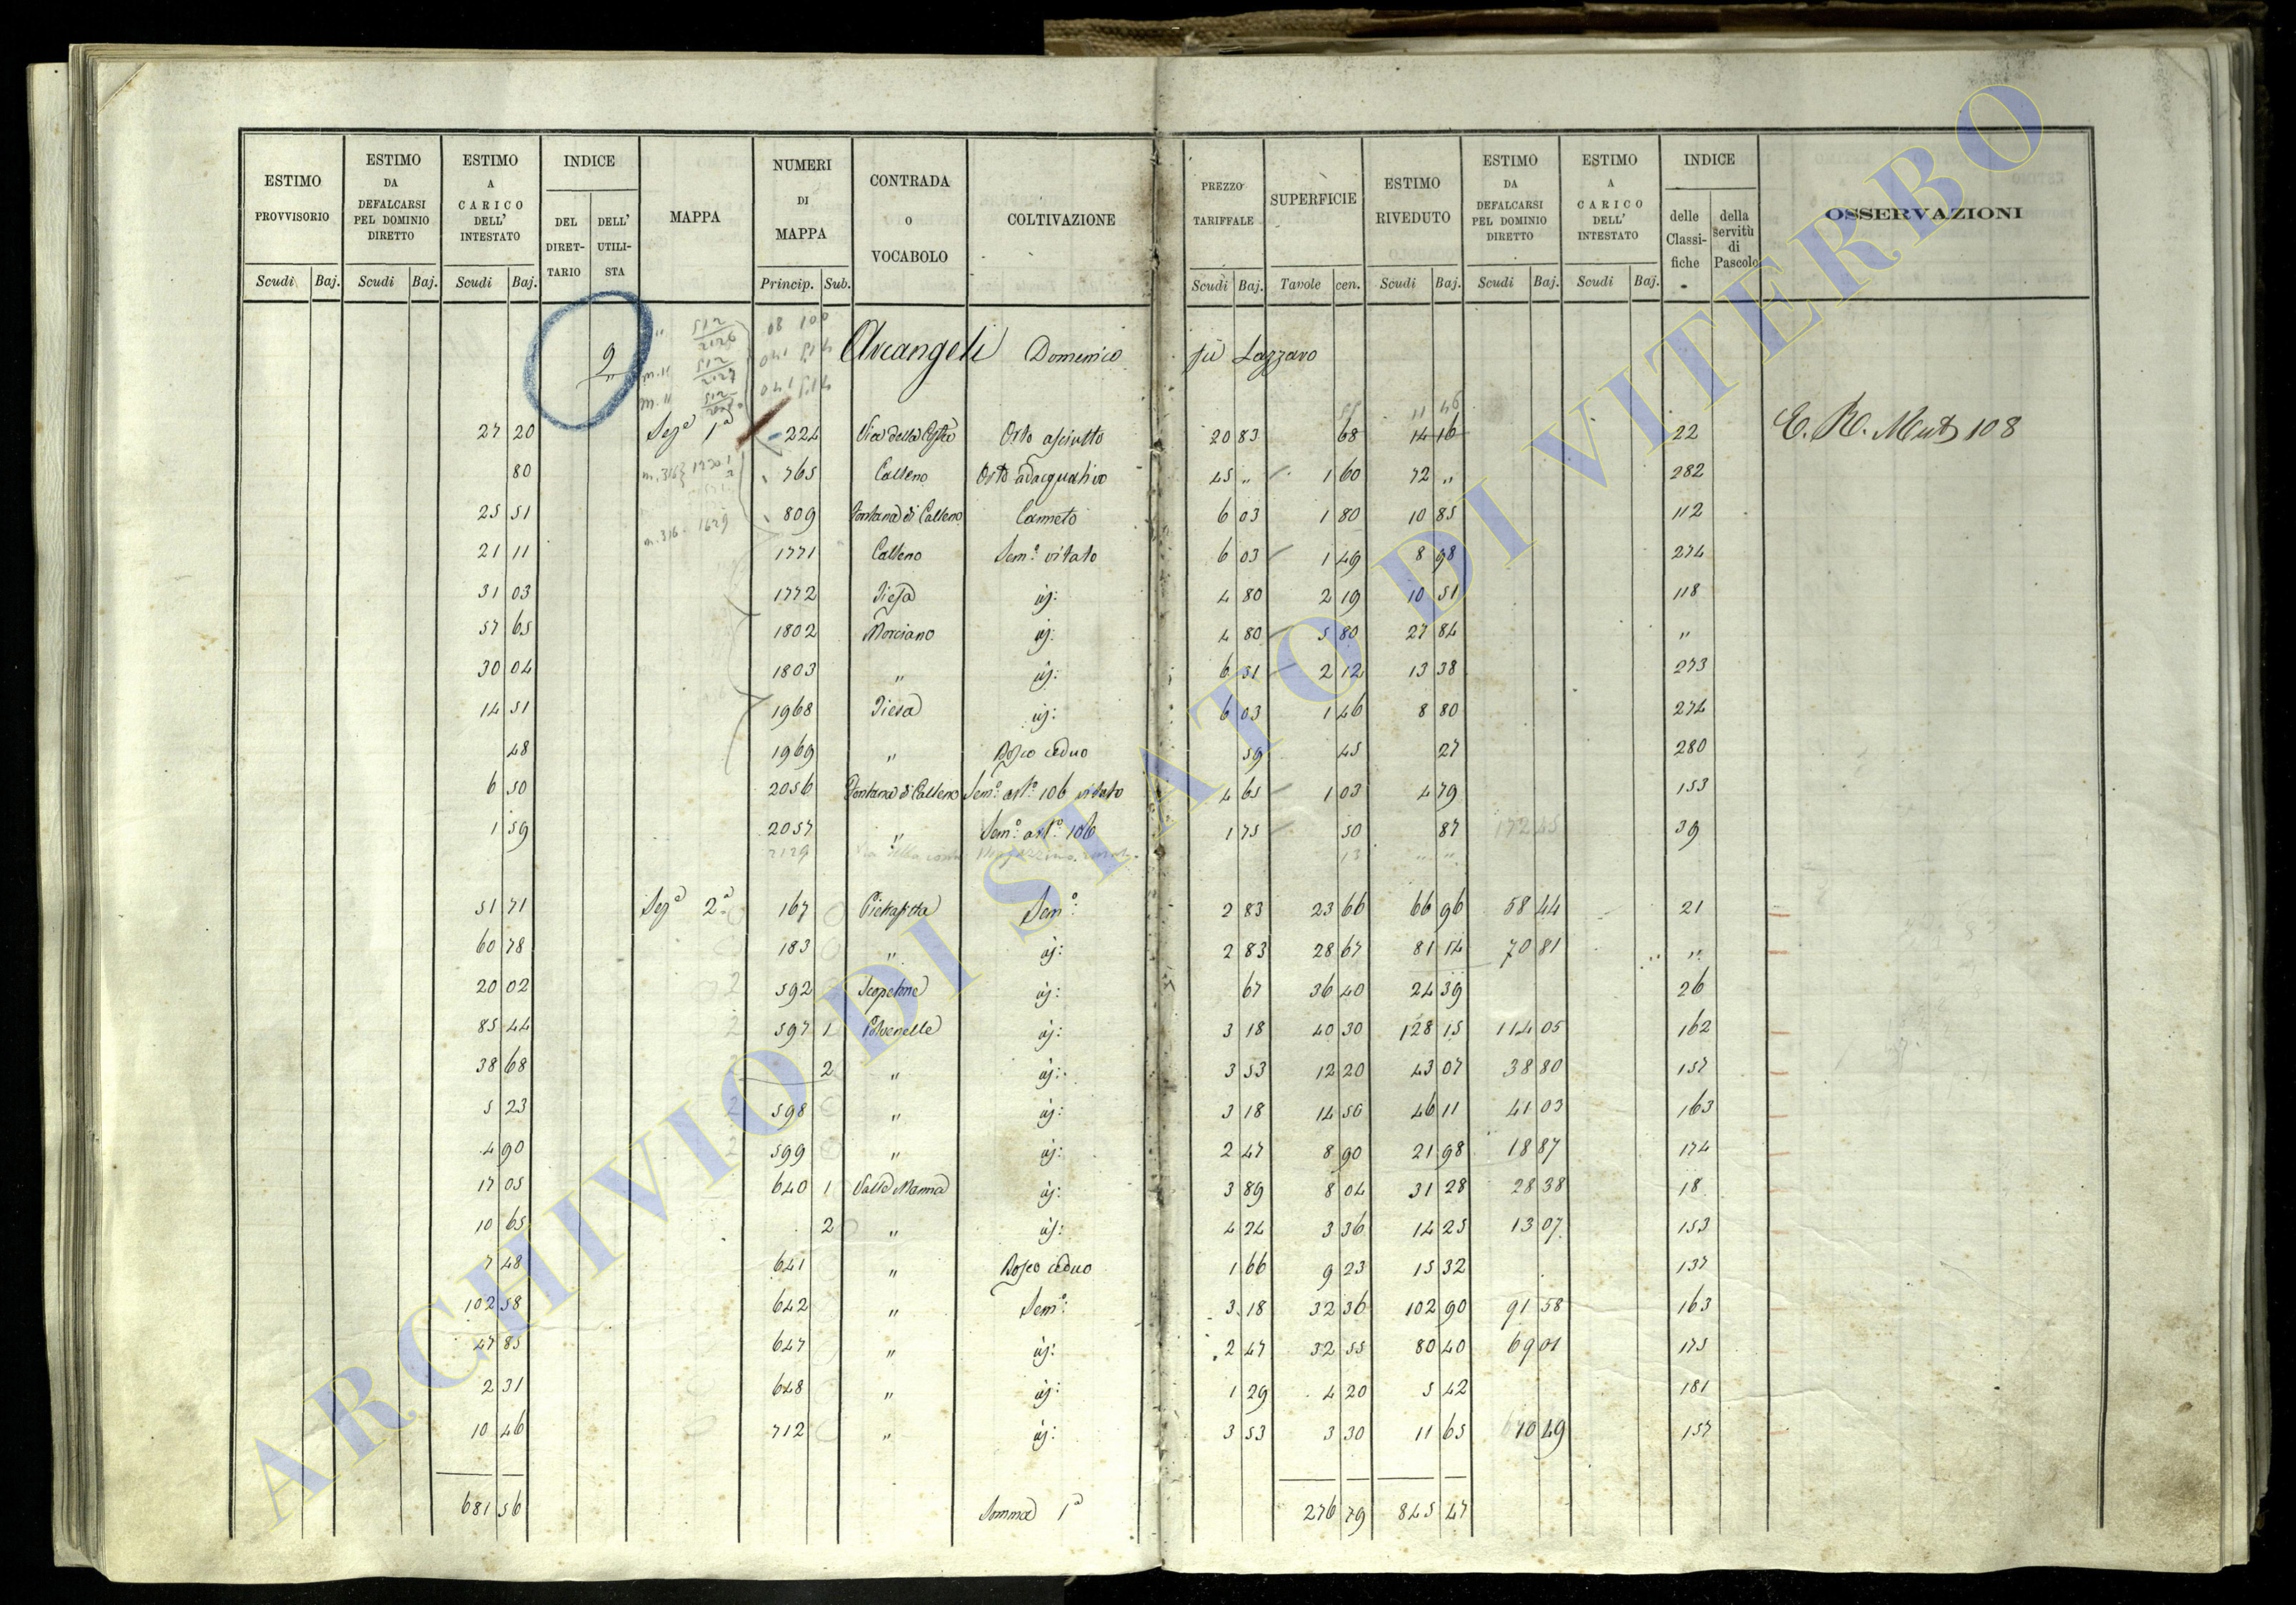 ESTIMO PROVVISORIO | ESTIMO DA DEFALCARSI PEL DOMINIO DIRETTO | ESTIMO A CARICO DELL' INTESTATO | INDICE | MAPPA | NUMERI DI MAPPA | CONTRADA O VOCABOLO | COLTIVAZIONE | PREZZO TARIFFALE | SUPERFICIE | ESTIMO RIVEDUTO | ESTIMO DA DEFALCARSI PEL DOMINIO DIRETTO | ESTIMO A CARICO DELL' INTESTATO | INDICE | OSSERVAZIONI
DEL DIRETTARIO | DELL' UTILISTA | delle Classifiche | della servitù di Pascolo
Scudi | Baj. | Scudi | Baj. | Scudi | Baj. | Princip. | Sub. | Scudi | Baj. | Tavole | cen. | Scudi | Baj. | Scudi | Baj. | Scudi | Baj.
9 Arcangeli Domenico fù Lazzaro
55 11 46
27 20 Seze 1a 224 Via della Costa Orto asciutto 20 83 68 14 16 22 E. R. Mut 108
80 765 Calleno Orto adacquativo 45 " 1 60 72 " 282
25 51 809 Fontana di Calleno Canneto 6 03 1 80 10 85 112
21 11 1771 Calleno Semo: vitato 6 03 1 49 8 98 274
31 03 1772 Piesa id: 4 80 2 19 10 51 118
57 65 1802 Morciano id: 4 80 5 80 27 84 "
30 04 1803 " id: 6 31 2 12 13 38 273
14 51 1968 Piesa id: 6 03 1 46 8 80 274
48 1969 " Bosco ceduo 59 45 27 280
6 50 2056 Fontana di Calleno Semo: arto 106 vitato 4 65 1 03 4 79 153
1 59 2057 " Semo: arto 106 1 75 50 87 172 45 39
2129 Via della costa 13 " "
51 71 Seze 2a 167 Pietrafitta Semo: 2 83 23 66 66 96 58 44 21
60 78 183 " id: 2 83 28 67 81 14 70 81 "
20 02 592 Scopetone id: 67 36 40 24 39 26
85 44 597 1 Polvenelle id: 3 18 40 30 128 15 114 05 162
38 68 2 " id: 3 53 12 20 43 07 38 80 157
5 23 598 " id: 3 18 14 50 46 11 41 03 163
4 90 599 " id: 2 47 8 90 21 98 18 87 174
17 05 640 1 Valle Manna id: 3 89 8 04 31 28 28 38 18
10 65 2 " id: 4 24 3 36 14 25 13 07 153
7 48 641 " Bosco ceduo 1 66 9 23 15 32 137
102 58 642 " Semo: 3 18 32 36 102 90 91 58 163
47 85 647 " id: 2 47 32 55 80 40 69 01 175
2 31 648 " id: 1 29 4 20 5 42 181
10 46 712 " id: 3 53 3 30 11 65 10 49 157
681 56 Somma 1a 276 79 845 47
ARCHIVIO DI STATO DI VITERBO